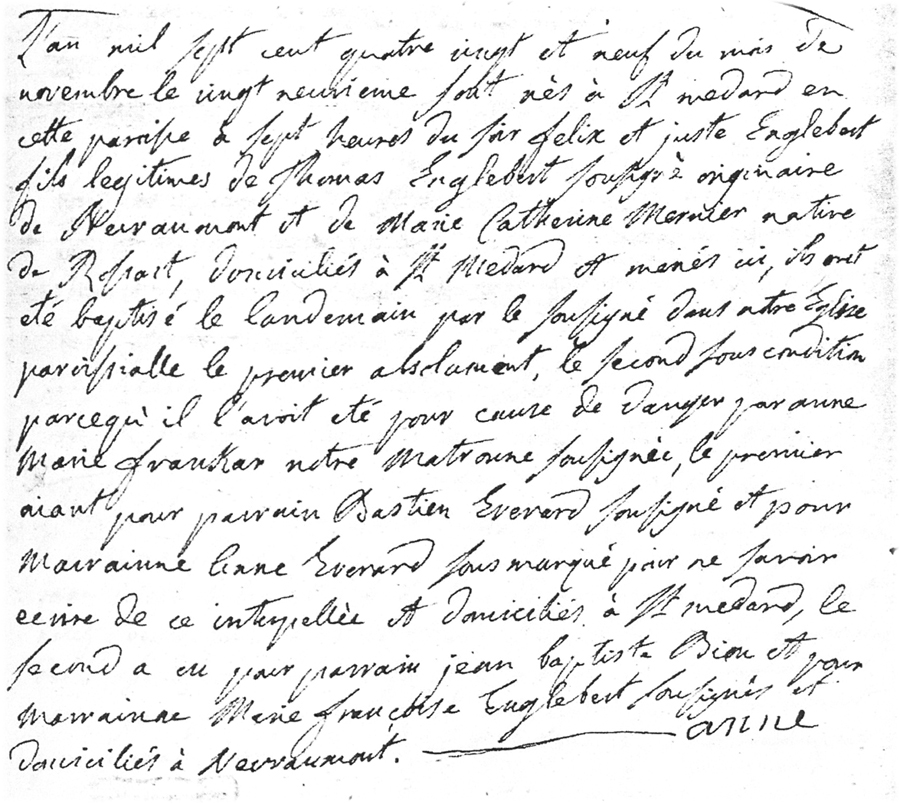 L'an mil sept cent quatre vingt et neuf du mois de
novembre le vingt neuvieme sont nés à St medard en
cette paroisse a sept heures du soir felix et juste Englebert
fils legitimes de thomas Englebert soussigné originaire
de Nevraumont et de Marie Catherine Mernier native
de Rossart, domiciliés à St Medard et menés ici, ils ont
eté baptisé le landemain par le soussigné dans notre Eglise
paroissialle le premier absolument, le second sous condition
parcequ'il l'avoit eté pour cause de danger par anne
Marie franskar notre Matronne soussignée, le premier
aiant pour parrain Bastien Everard soussigné et pour
Marrainne Anne Everard sousmarqué pour ne savoir
ecrire de ce interpellée et domiciliés à St medard, le
second a eu pour parrain jean baptiste Biou et pour
Marrainne Marie françoise Englebert soussignés et
domiciliés à Nevraumont. anne